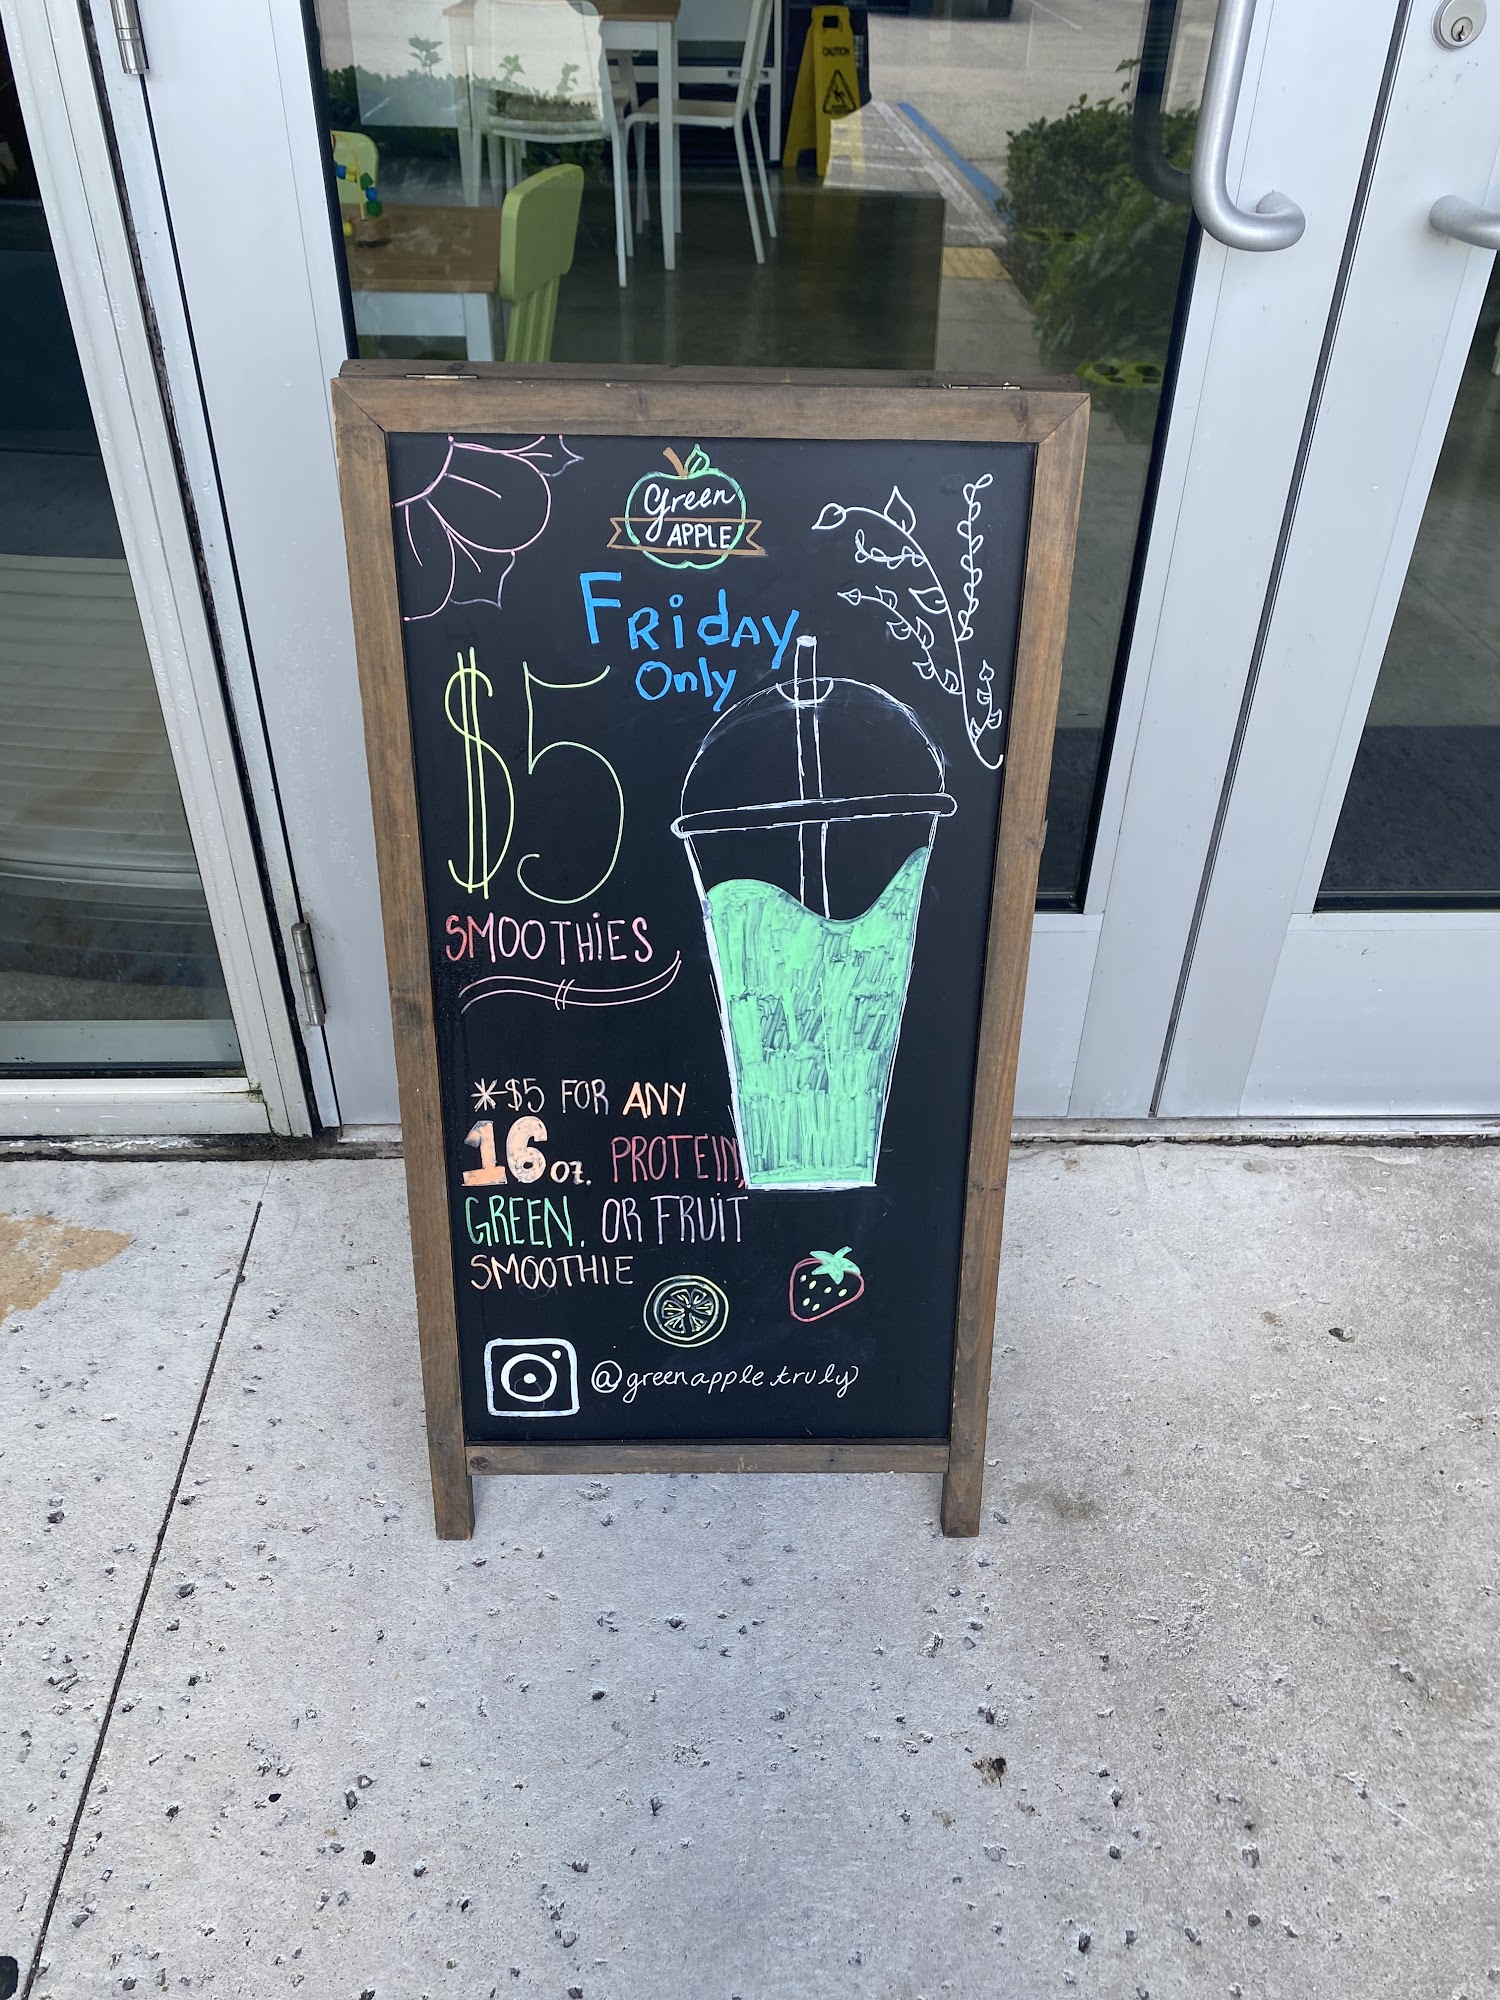 CAUTION
Green
APPLE
FRidAy
Only
$5
SMOOTHiES
*$5 FOR ANY
16oz. PROTEIN,
GREEN, OR FRUiT
SMOOTHIE
@greenappletruly